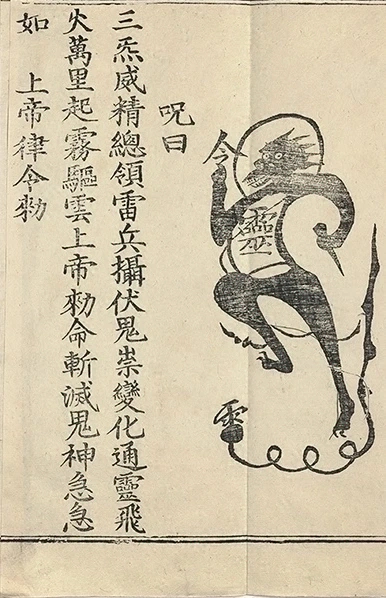 令
靈
雷
呪曰
三炁威精總領雷兵攝伏鬼祟變化通靈飛
火萬里起霧驅雲上帝勑命斬滅鬼神急急
如　上帝律令勑